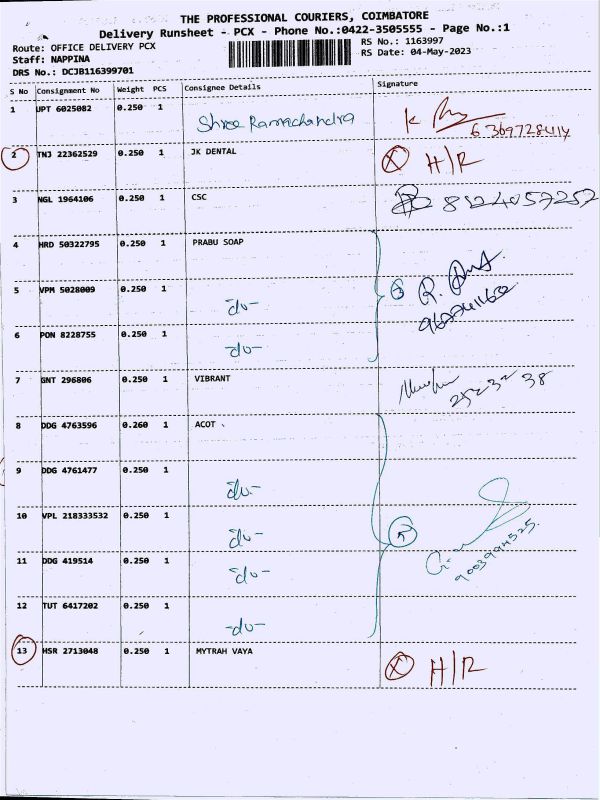 THE PROFESSIONAL COURIERS, COIMBATORE
Delivery Runsheet - PCX - Phone No.:0422-3505555 - Page No.:1
Route: OFFICE DELIVERY PCX
Staff: NAPPINA
DRS No.: DCJB116399701
RS No.: 1163997
RS Date: 04-May-2023
S No Consignment No Weight PCS Consignee Details Signature
1 JPT 6025082 0.250 1 Shree Ramachandra
2 TNJ 22362529 0.250 1 JK DENTAL X H/R
3 NGL 1964106 0.250 1 CSC
4 HRD 50322795 0.250 1 PRABU SOAP
5 VPM 5028009 0.250 1 -do-
6 PON 8228755 0.250 1 -do-
7 GNT 296806 0.250 1 VIBRANT
8 DDG 4763596 0.260 1 ACOT
9 DDG 4761477 0.250 1 -do-
10 VPL 218333532 0.250 1 -do-
11 DDG 419514 0.250 1 -do-
12 TUT 6417202 0.250 1 -do-
13 HSR 2713048 0.250 1 MYTRAH VAYA X H/R